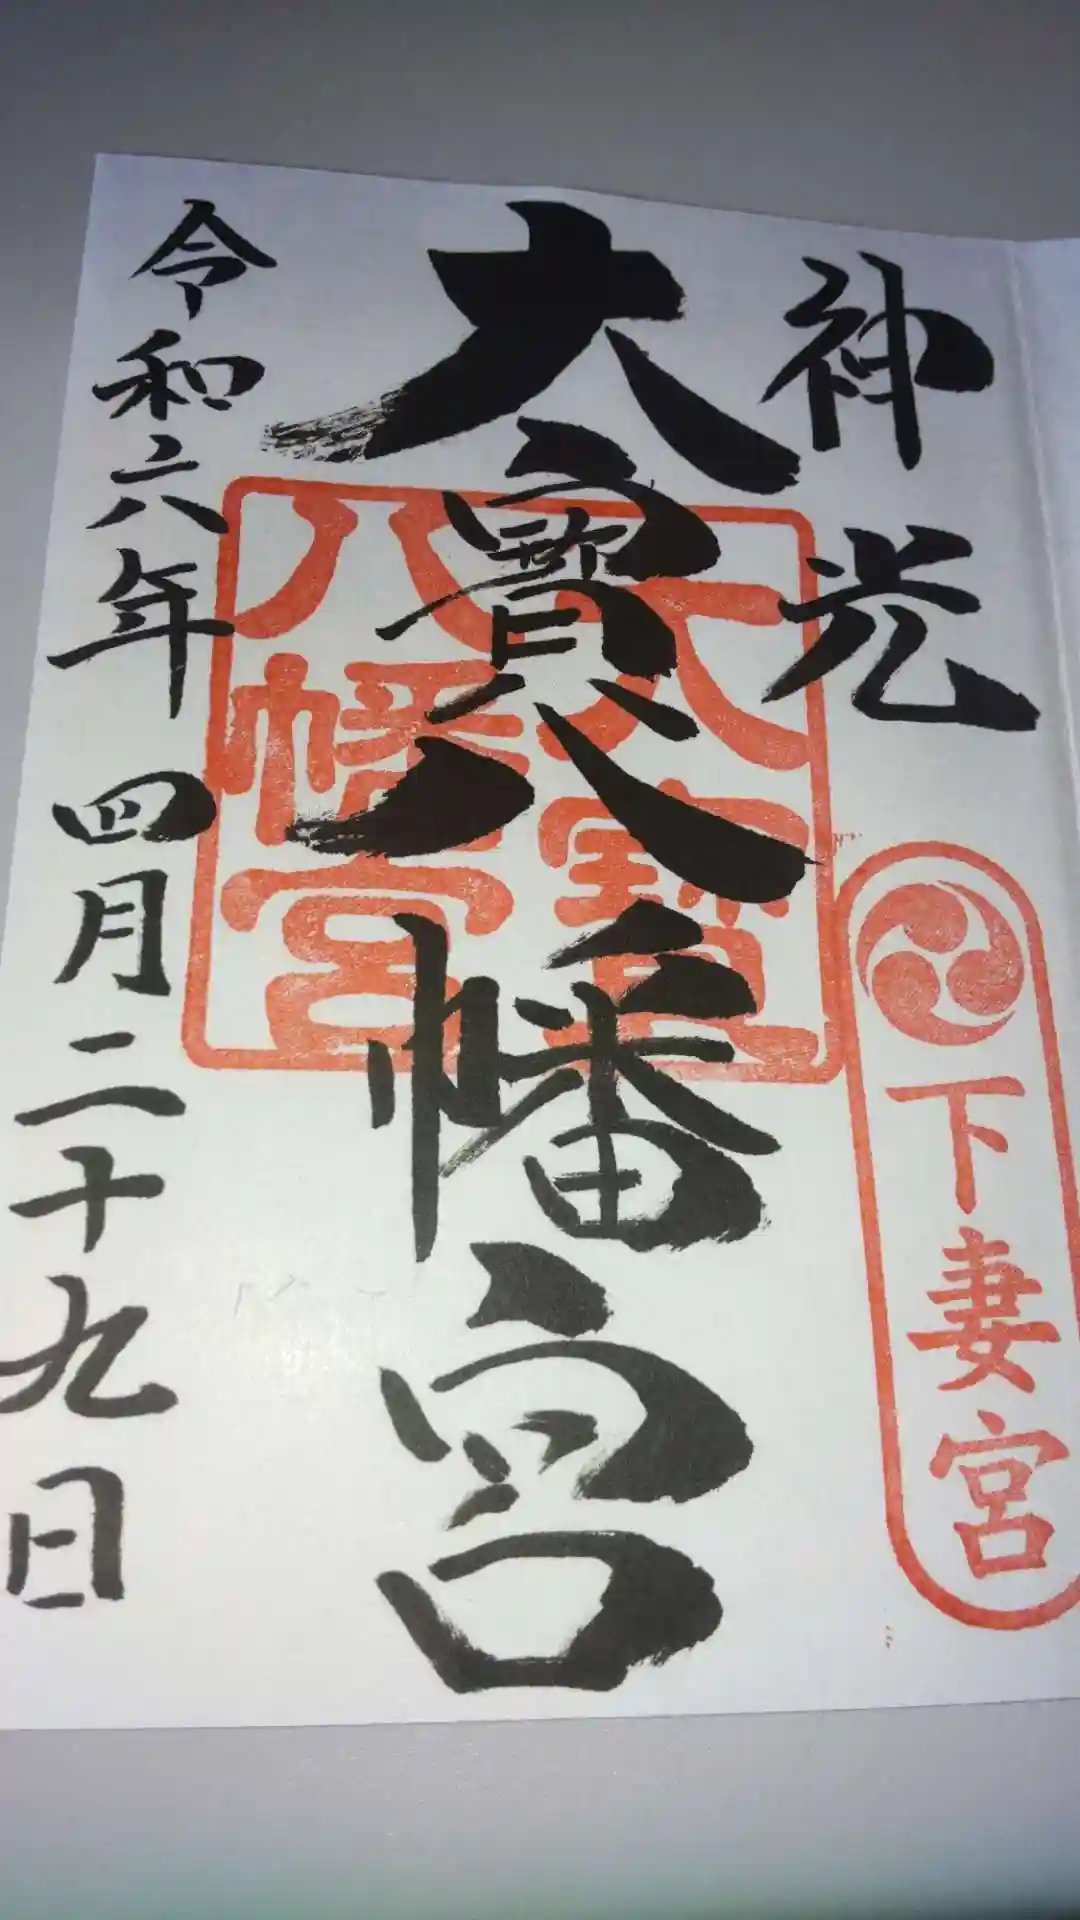 神光
下妻宮
大寳八幡宮
大寳
八幡宮
令和六年 四月二十九日